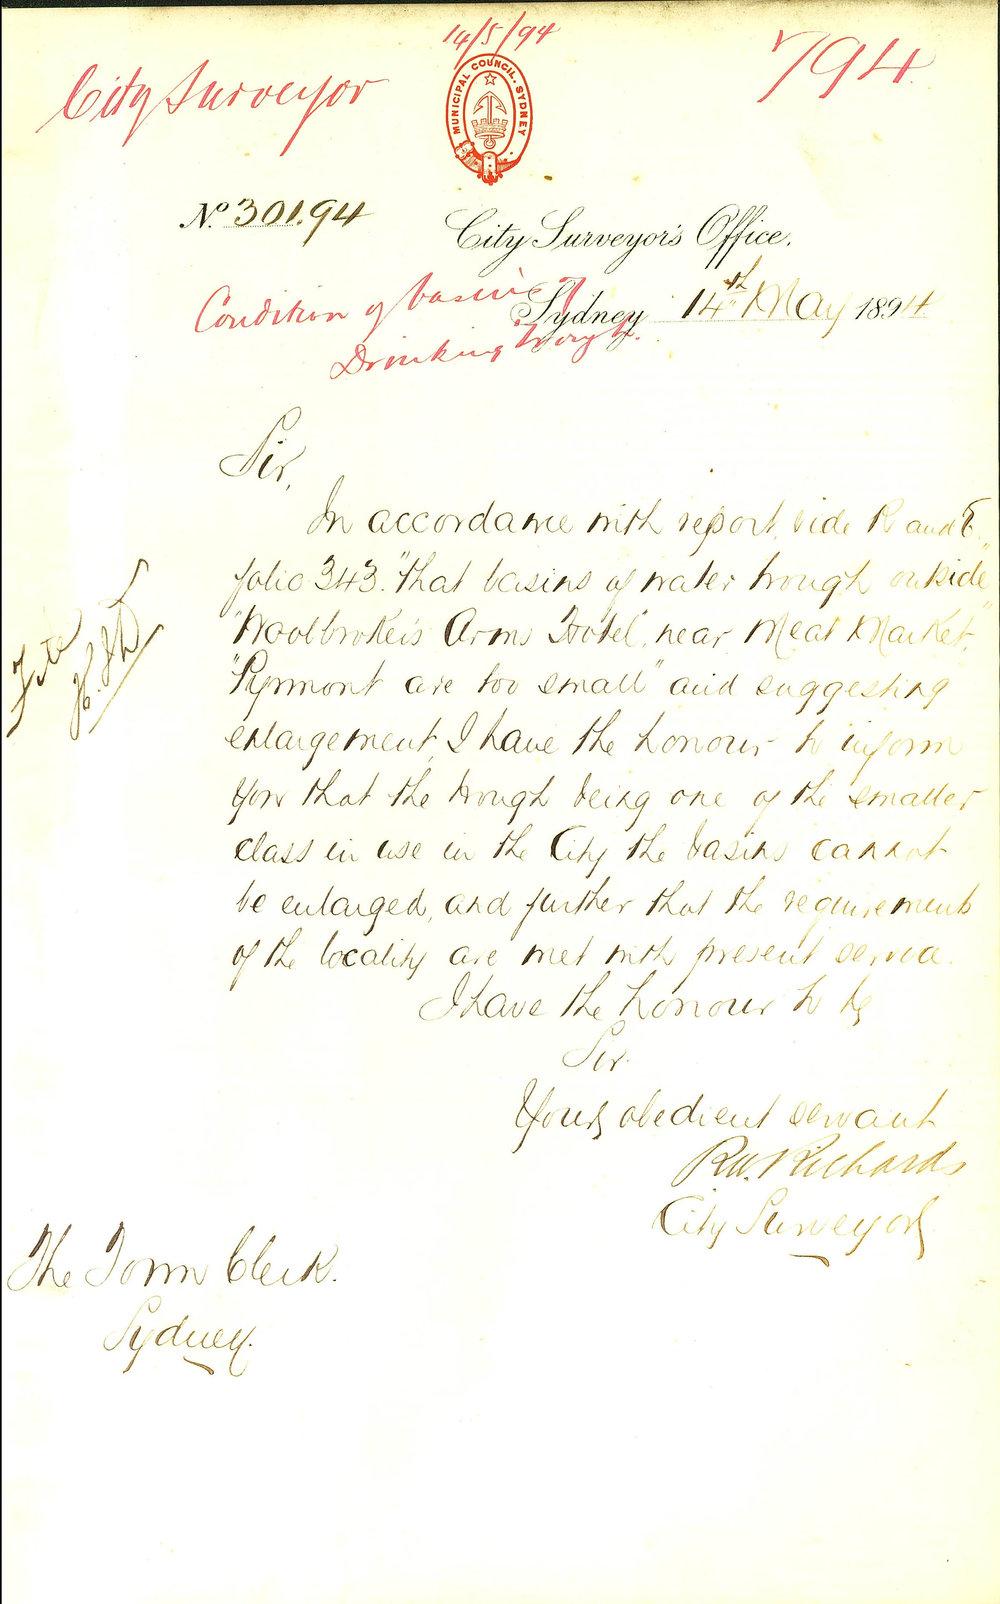 14/5/94
City Surveyor
794
MUNICIPAL COUNCIL. SYDNEY
No. 301.94
City Surveyor's Office.
Sydney 14th May 1894
Condition of basins of
Drinking Trough.
Sir,
In accordance with report, vide R and E.
folio 343. "that basins of water trough outside"
"Woolbrokers Arms Hotel", near Meat Market,"
"Pyrmont are too small" and suggesting
enlargement, I have the honour to inform
you that the trough being one of the smaller
class in use in the City the basins cannot
be enlarged, and further that the requirements
of the locality are met with present service.
I have the honour to be
Sir.
Your obedient servant
R.W. Richards
City Surveyor
The Town Clerk.
Sydney.
File